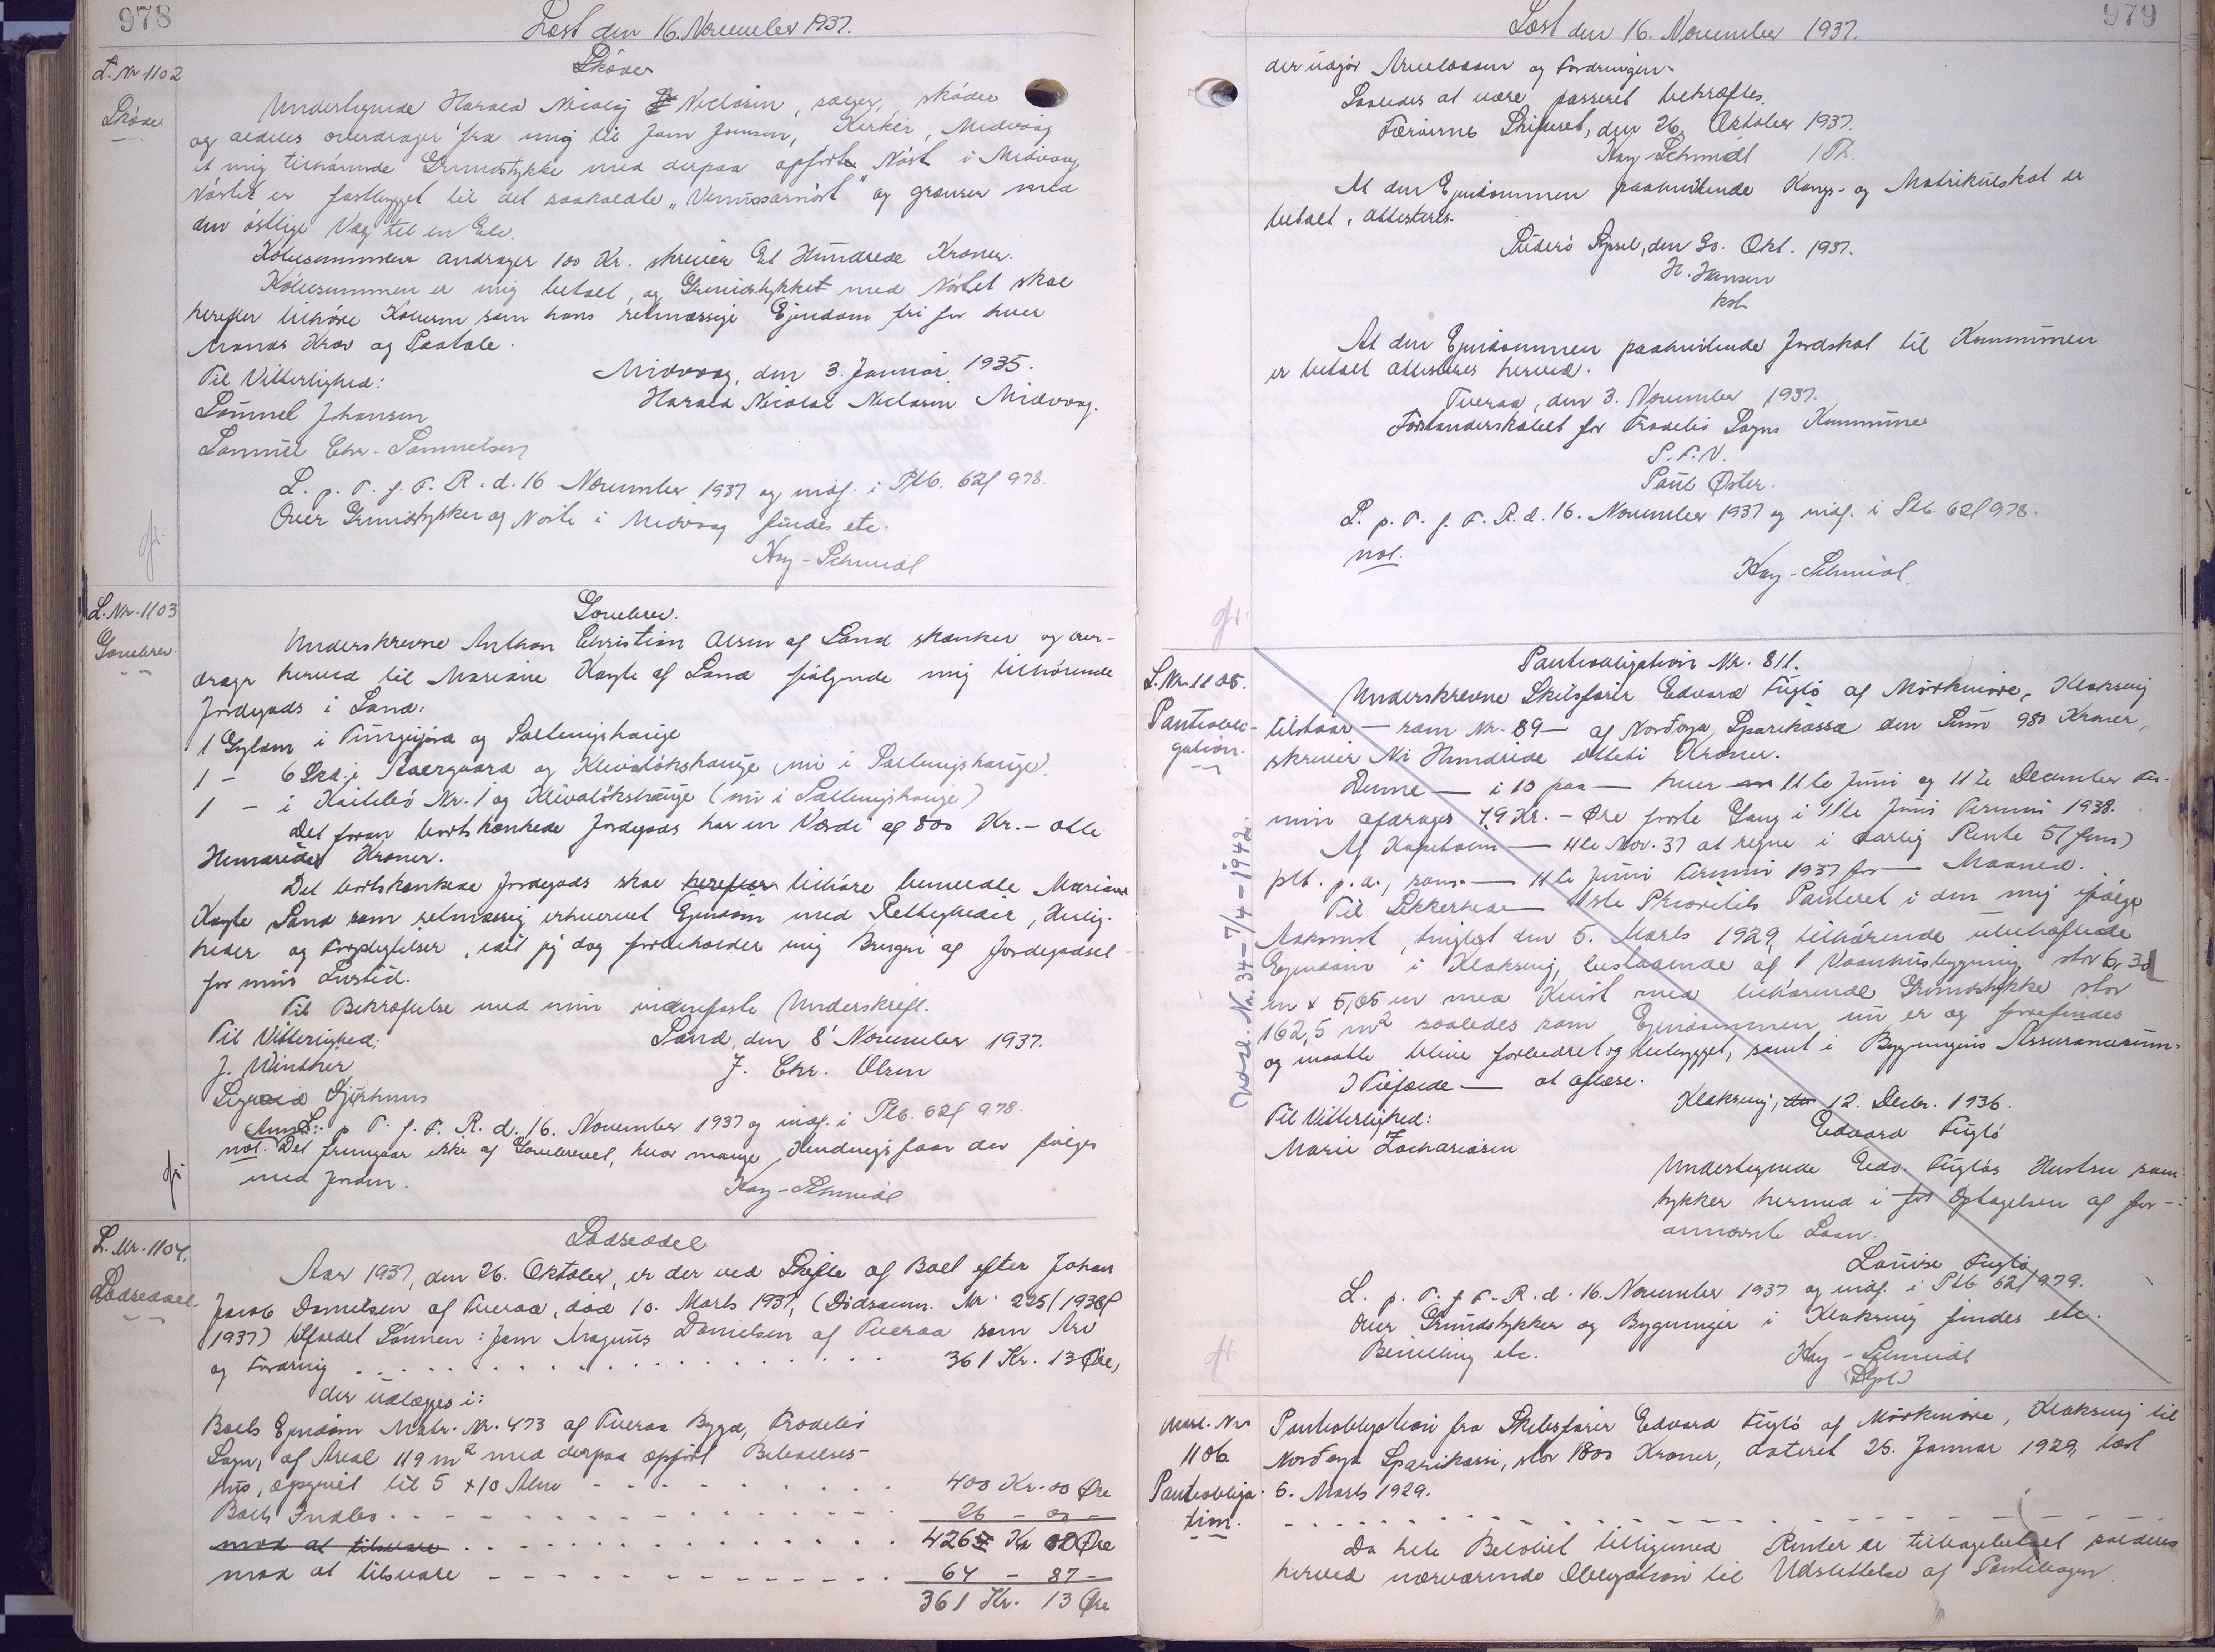 978
Læst den 16. November 1937.
L. Nr 1102
Skøde
Skøde
Undertegnede Harald Nicolaj Niclasen, sælger, skøder
og aldeles overdrager fra mig til Jom Jomsen, Kerkir, Midvaag
et mig tilhørende Grundstykke med derpaa opført Nøst i Midvaag
Nøstet er fastbygget til det saakaldte „Vennssarnøst" og grænser med
den østlige Væg til en Elv.
Købesummen andrager 100 Kr. skriver Et Hundrede Kroner.
Købesummen er mig betalt, og Grundstykket med Nøstet skal
herefter tilhøre Køberen som hans retmæssige Ejendom fri for hver
Mands Krav og Paatale.
Midvaag, den 3. Januar 1935.
Til Vitterlighed:
Harald Nicolai Niclasen Midvaag.
Samuel Johansen
Samuel Chr. Samuelsen
L. p. T. f. F. R. d. 16 November 1937 og indf. i Ptb. 62f 978.
Over Grundstykker og Nøste i Midvaag findes etc.
Kay-Schmidt
L. Nr. 1103
Gavebrev.
Gavebrev.
Underskrevne Anthon Christian Olsen af Sand skænker og over-
drager herved til Mariane Høgle af Sand følgende mig tilhørende
Jordegods i Sand:
1 Gylden i Tungugjørd og Saltungshauge
1 - 6 Skd. i Aaergaard og Klivaløkshauge (nu i Saltungshauge).
1 - i Kaitebø Nr. 1 og Klivaløkshauge (nu i Saltungshauge)
Det foran bortskænkede Jordegods har en Værdi af 800 Kr. - otte
Hundrede Kroner.
Det bortskænkede Jordegods skal herefter tilhøre bemeldte Mariane
Høgle Sand som retmæssig erhvervet Ejendom med Rettigheder, Herlig-
heder og Forpligtelser, idet jeg dog forbeholder mig Brugen af Jordegodset
for min Livstid.
Til Bekræftelse med min vidnefaste Underskrift.
Til Vitterlighed:
Sand, den 8' November 1937.
J. Winther
J. Chr. Olsen
Sigvald Gjørhuus
Anm: L. p. T. f. F. R. d. 16. November 1937 og indf. i Ptb. 62f 978.
not. Det fremgaar ikke af Gavebrevet, hvor mange Hundingsfaar der følger
med Jorden.
Kay-Schmidt
L. Nr. 1104.
Lodseddel.
Lodseddel
Aar 1937, den 26. Oktober, er der ved Skifte af Boet efter Johan
Jacob Danielsen af Tveraa, død 10. Marts 1937, (Dødsanm. Nr. 225/1936/
1937) tilfaldet Sønnen: Jom Magnus Danielsen af Tveraa som Arv
og Fordring . . . . 361 Kr. 13 Øre,
der udlægges i:
Boets Ejendom Matr. Nr. 473 af Tveraa Bygd, Frodebø
Sogn, af Areal 119 m² med derpaa opført Beboelses-
hus, opgivet til 5 x 10 Alen - - - - 400 Kr. 00 Øre
Boets Indbo - - - - 26 - 00 -
mod at tilsvare . . . . 426 Kr 00 Øre
mod at tilsvare - - - - 64 - 87 -
361 Kr. 13 Øre
979
Læst den 16. November 1937.
der udgør Arvelodden og Fordringen.
Saaledes at være passeret bekræftes.
Færøernes Skifteret, den 26. Oktober 1937.
Kay Schmidt
At den Ejendommen paahvilende Konge- og Matrikulskat er
betalt, attesteres.
Suderø Syssel, den 30. Okt. 1937.
H. Hansen
kst
At den Ejendommen paahvilende Jordskat til Kommunen
er betalt attesteres herved.
Tveraa, den 3. November 1937.
Forstanderskabet for Frodebø Sogns Kommune
S. F. V.
Paul Øster.
L. p. T. f. F. R. d. 16. November 1937 og indf. i Ptb. 62f 978.
not.
Kay-Schmidt.
L. Nr. 1105.
Pantobli-
gation.
Udsl. Nr. 34 - 7/4 - 1942.
Pantobligation Nr. 811.
Underskrevne Skibsfører Edvard Fuglø af Mørkmøre, Klaksvig
tilstaar — som Nr. 89 — af Norðoya Sparikassa den Sum 980 Kroner,
skriver Ni Hundrede otteti Kroner.
Denne — i 10 paa — hver 11te Juni og 11te December Ter-
min afdrages 79 Kr. - Øre første Gang i 11te Juni Termin 1938.
Af Kapitalen — 11te Nov. 37 at regne i aarlig Rente 5 (fem)
pCt. p. a., som — 11te Juni Termin 1937 for — Maaned.
Til Sikkerhed — 1ste Prioritets Panteret i den mig ifølge
Adkomst, tinglæst den 5. Marts 1929, tilhørende ubehæftede
Ejendom i Klaksvig, bestaaende af 1 Vaanhusbygning stor 6,30
m x 5,05 m med Kvist med tilhørende Grundstykke stor
162,5 m² saaledes som Ejendommen nu er og forefindes
og maatte blive forbedret og bebygget, samt i Bygningens Assurancesum.
I Tilfælde — at aflæse.
Klaksvig, 12. Decbr. 1936.
Til Vitterlighed:
Edvard Fuglø
Marie Zachariasen
Undertegnede Edv. Fugløs Hustru sam-
tykker hermed i Optagelsen af for-
annævnte Laan.
Louise Fuglø
L. p. T. f. F. R. d. 16. November 1937 og indf. i Ptb 62f 979.
Over Grundstykker og Bygninger i Klaksvig findes etc.
Bevilling etc.
Kay-Schmidt
Udsl. Nr
1106.
Pantobliga-
tion.
Pantobligation fra Skibsfører Edvard Fuglø af Mørkmøre, Klaksvig til
Norðoya Sparikassi, stor 1800 Kroner, dateret 25. Januar 1929, læst
5. Marts 1929.
Da hele Beløbet tilligemed Renter er tilbagebetalt kvitteres
herved nærværende Obligation til Udslettelse af Pantebogen.